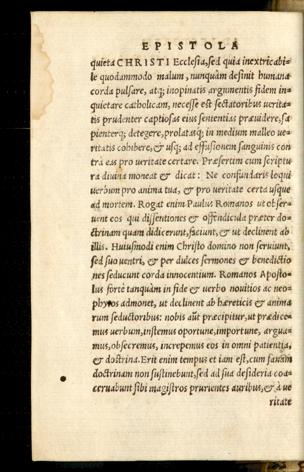 EPISTOLA
quieta CHRISTI Ecclesia, sed quia inextricabi⸗
le quodammodo malum, nunquàm desinit humana
corda pulsare, atq; inopinatis argumentis fidem in⸗
quietare catholicam, necesse est sectatoribus uerita⸗
tis prudenter captiosas eius sententias præuidere, sa⸗
pienterq; detegere, prolatasq; in medium malleo ue⸗
ritatis cohibere, & usq; ad effusionem sanguinis con
trà eas pro ueritate certare. Præsertim cum scriptu
ra diuina moneat & dicat: Ne confundaris loqui
uerbum pro anima tua, & pro ueritate certa usque
ad mortem. Rogat enim Paulus Romanos ut obser⸗
uent eos qui dissentiones & offendicula præter do⸗
ctrinam quam didicerunt, faciunt, & ut declinent ab
illis. Huiusmodi enim Christo domino non seruiunt,
sed suo uentri, & per dulces sermones & benedictio
nes seducunt corda innocentium. Romanos Aposto⸗
lus fortè tanquàm in fide & uerbo nouitios ac neo⸗
phytos admonet, ut declinent ab hæreticis & anima
rum seductoribus: nobis aũt præcipitur, ut prædice⸗
mus uerbum, instemus oportune, importune, argua⸗
mus, obsecremus, increpemus eos in omni patientia,
& doctrina. Erit enim tempus et iam est, cum sanam
doctrinam non sustinebunt, sed ad sua desideria coa⸗
ceruabunt sibi magistros prurientes auribus, & à ue
ritate